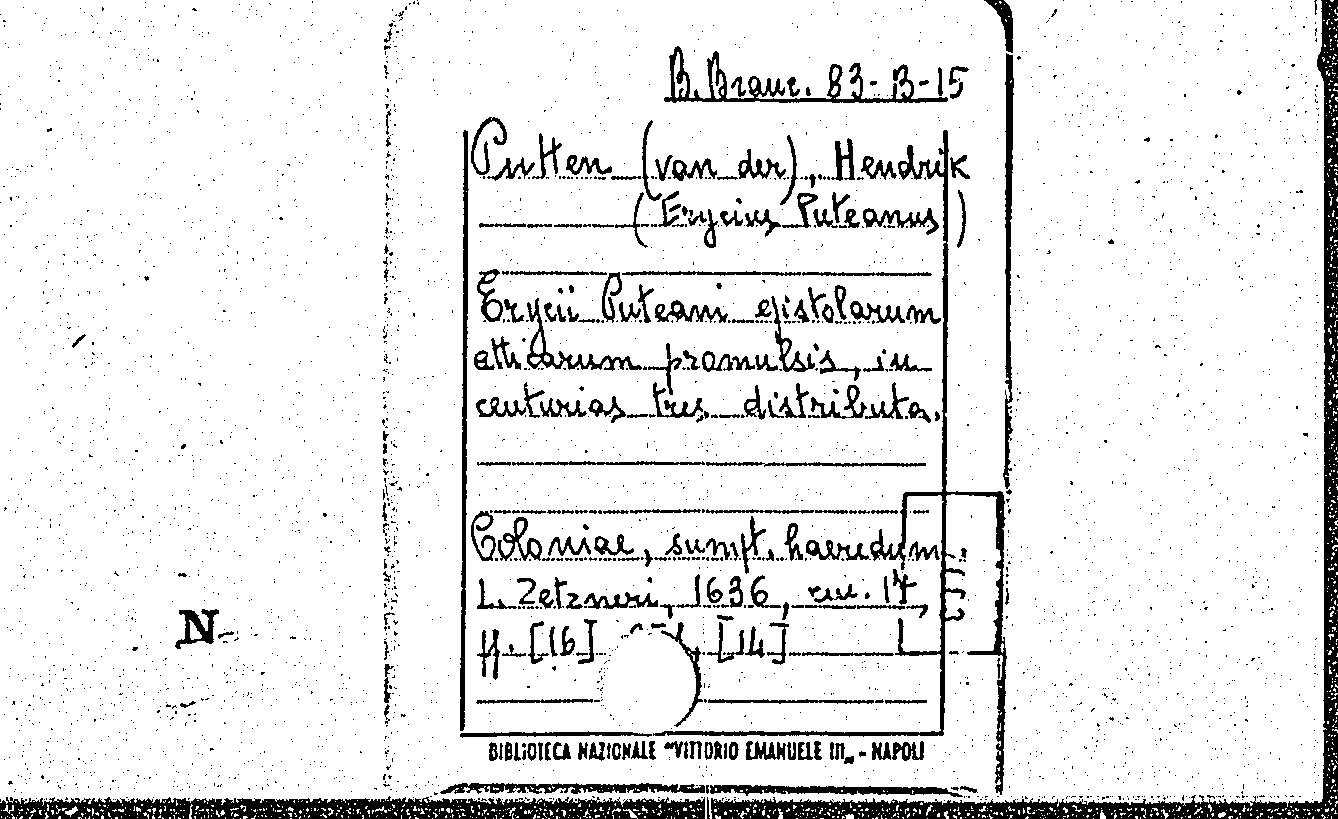 B. Branc. 83-B-15
Putten (van der), Hendrik
(Erycius Puteanus)
Erycii Puteani epistolarum
atticarum promulsis, in
centurias tres distributa.
Coloniae, sumpt. haeredum
L. Zetzneri, 1636, cm. 17,
pp. [16] [14]
N
BIBLIOTECA NAZIONALE "VITTORIO EMANUELE III" - NAPOLI